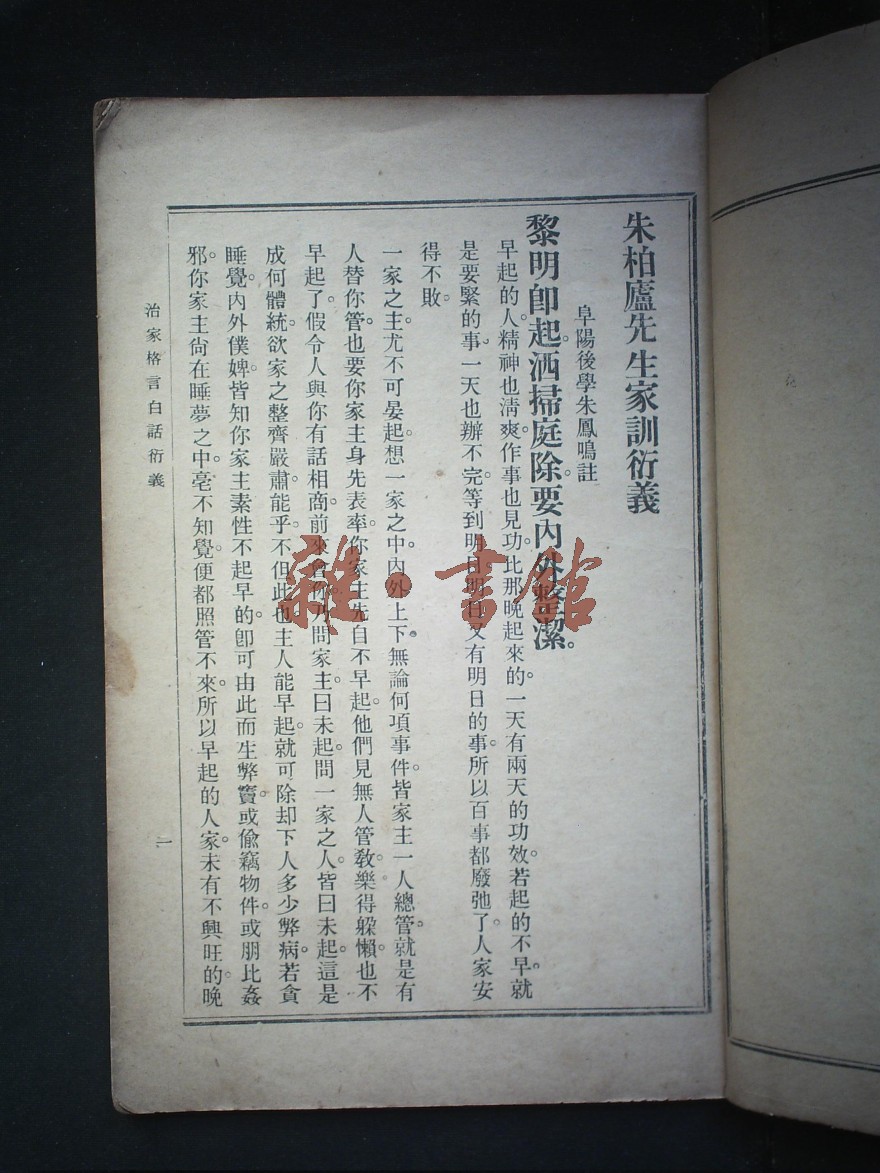 朱柏廬先生家訓衍義
阜陽後學朱鳳鳴註
黎明卽起。洒掃庭除。要內外整潔。
早起的人精神也清爽。作事也見功。比那晚起來的。一天有兩天的功效。若起的不早。就
是要緊的事。一天也辦不完。等到明日。明日又有明日的事。所以百事都廢弛了。人家安
得不敗。
一家之主。尤不可晏起。想一家之中。內外上下。無論何項事件。皆家主一人總管。就是有
人替你管。也要你家主身先表率。你家主先自不早起。他們見無人管教。樂得躱懶。也不
早起了。假令人與你有話相商。前來會你。乃問家主。曰未起。問一家之人。皆曰未起。這是
成何體統。欲家之整齊嚴肅。能乎。不但此也。主人能早起。就可除却下人多少弊病。若貪
睡覺。內外僕婢。皆知你家主素性不起早的。卽可由此而生弊竇。或偷竊物件。或朋比姦
邪。你家主尙在睡夢之中。毫不知覺。便都照管不來。所以早起的人家。未有不興旺的。晚
治家格言白話衍義
一
雜·書館